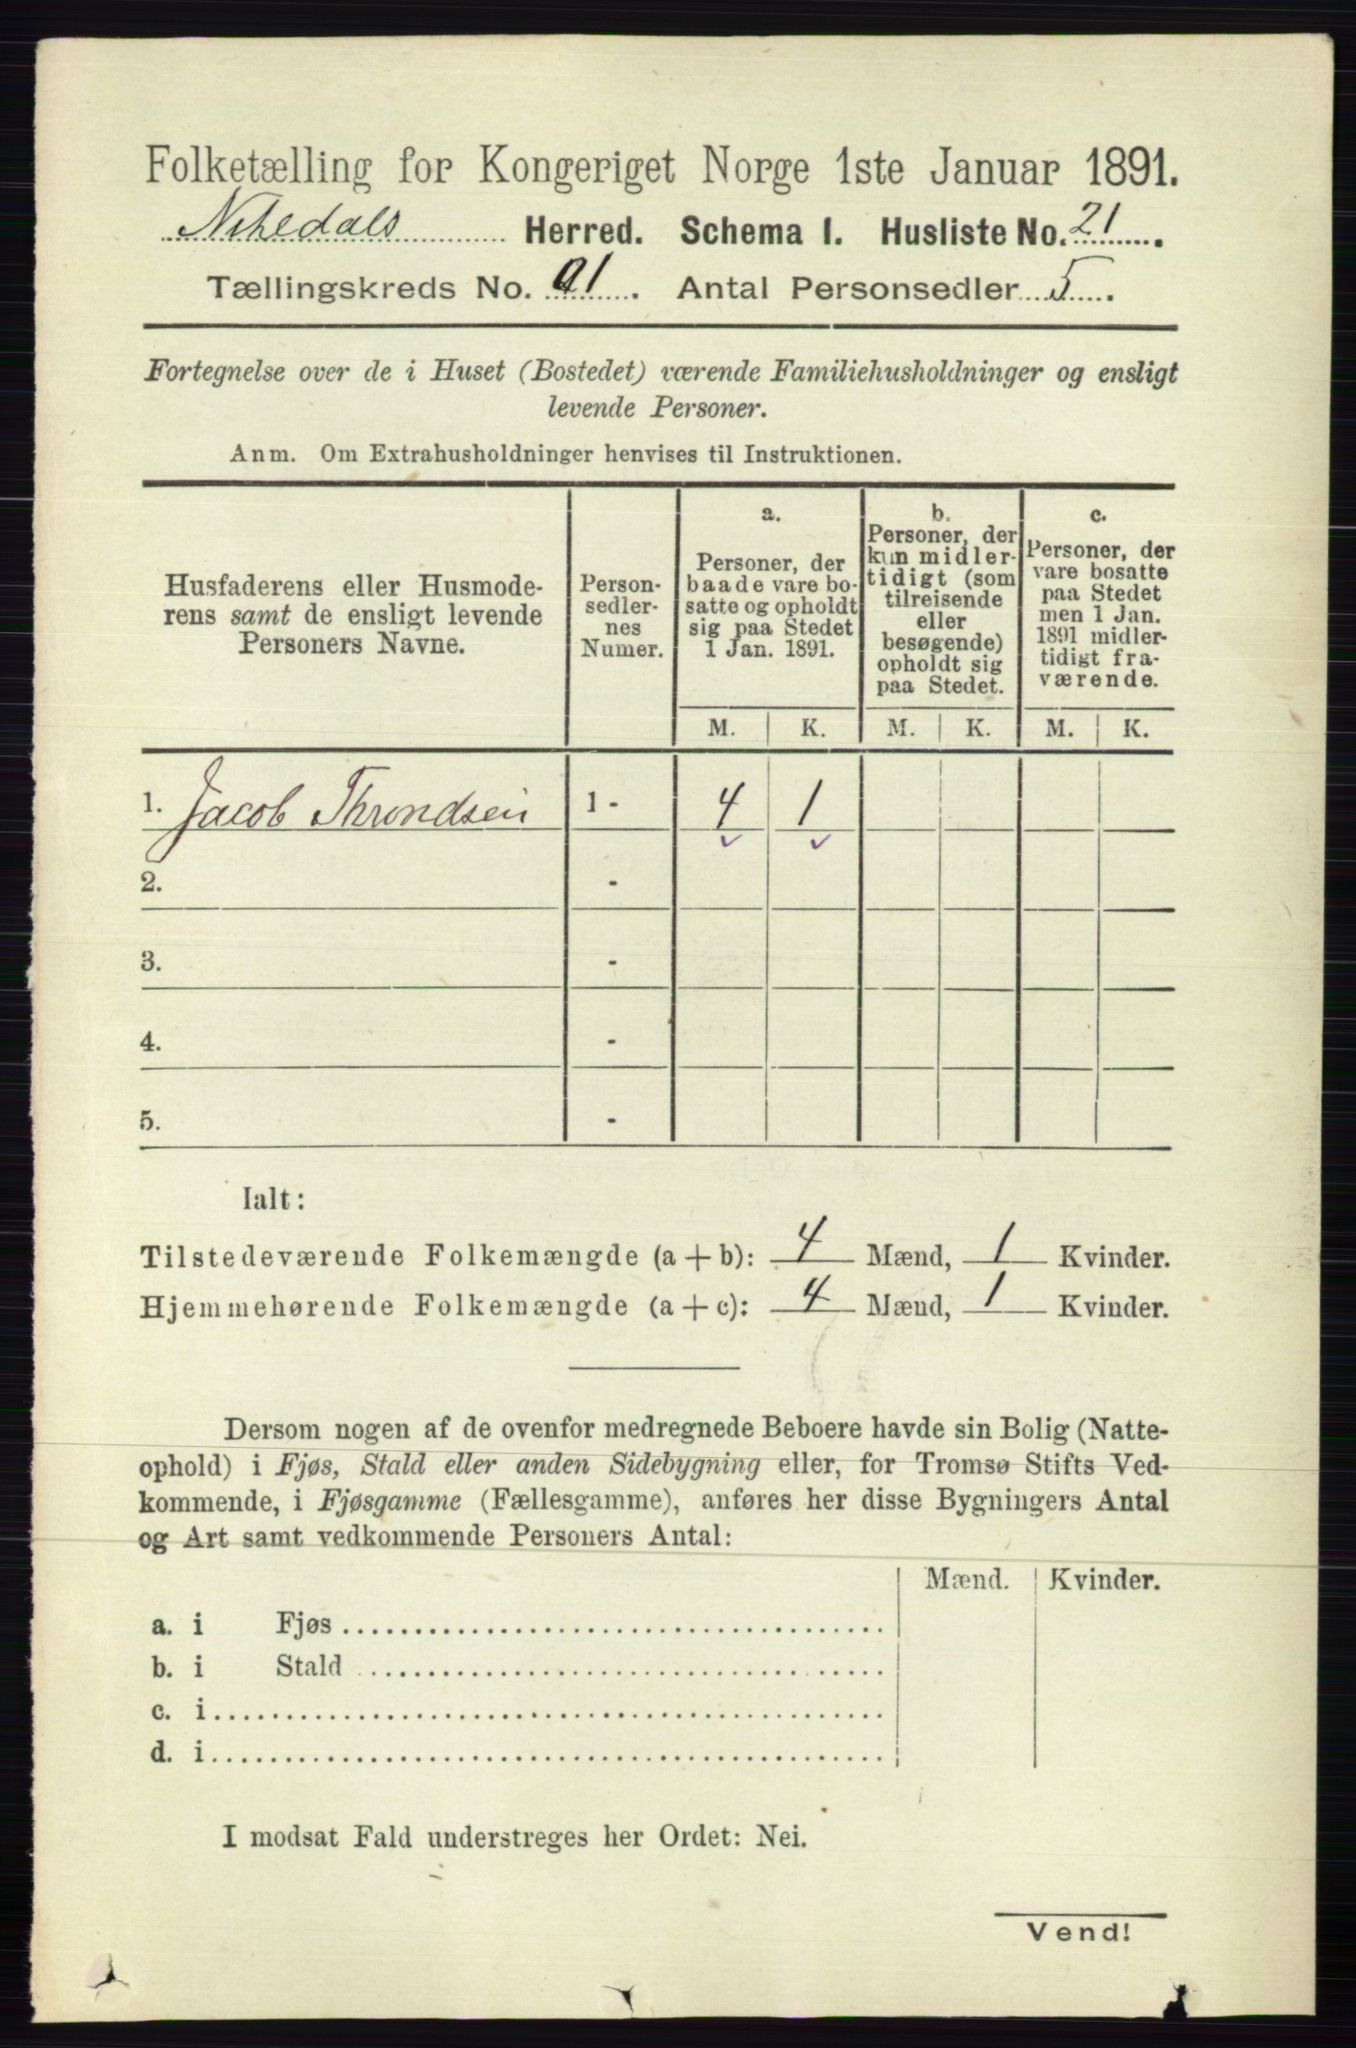 Folketælling for Kongeriget Norge 1ste Januar 1891.
Nitedals Herred. Schema I. Husliste No. 21.
Tællingskreds No. 1. Antal Personsedler 5.
Fortegnelse over de i Huset (Bostedet) værende Familiehusholdninger og ensligt
levende Personer.
Anm. Om Extrahusholdninger henvises til Instruktionen.
Husfaderens eller Husmode-
rens samt de ensligt levende
Personers Navne.
Person-
sedler-
nes
Numer.
a.
Personer, der
baade vare bo-
satte og opholdt
sig paa Stedet
1 Jan. 1891.
b.
Personer, der
kun midler-
tidigt (som
tilreisende
eller
besøgende)
opholdt sig
paa Stedet.
c.
Personer, der
vare bosatte
paa Stedet
men 1 Jan.
1891 midler-
tidigt fra-
værende.
M. K. M. K. M. K.
1. Jacob Throndsen 1 - 4 1
2. -
3. -
4. -
5. -
Ialt:
Tilstedeværende Folkemængde (a + b): 4 Mænd, 1 Kvinder.
Hjemmehørende Folkemængde (a + c): 4 Mænd, 1 Kvinder.
Dersom nogen af de ovenfor medregnede Beboere havde sin Bolig (Natte-
ophold) i Fjøs, Stald eller anden Sidebygning eller, for Tromsø Stifts Ved-
kommende, i Fjøsgamme (Fællesgamme), anføres her disse Bygningers Antal
og Art samt vedkommende Personers Antal:
Mænd. Kvinder.
a. i Fjøs
b. i Stald
c. i
d. i
I modsat Fald understreges her Ordet: Nei.
Vend!